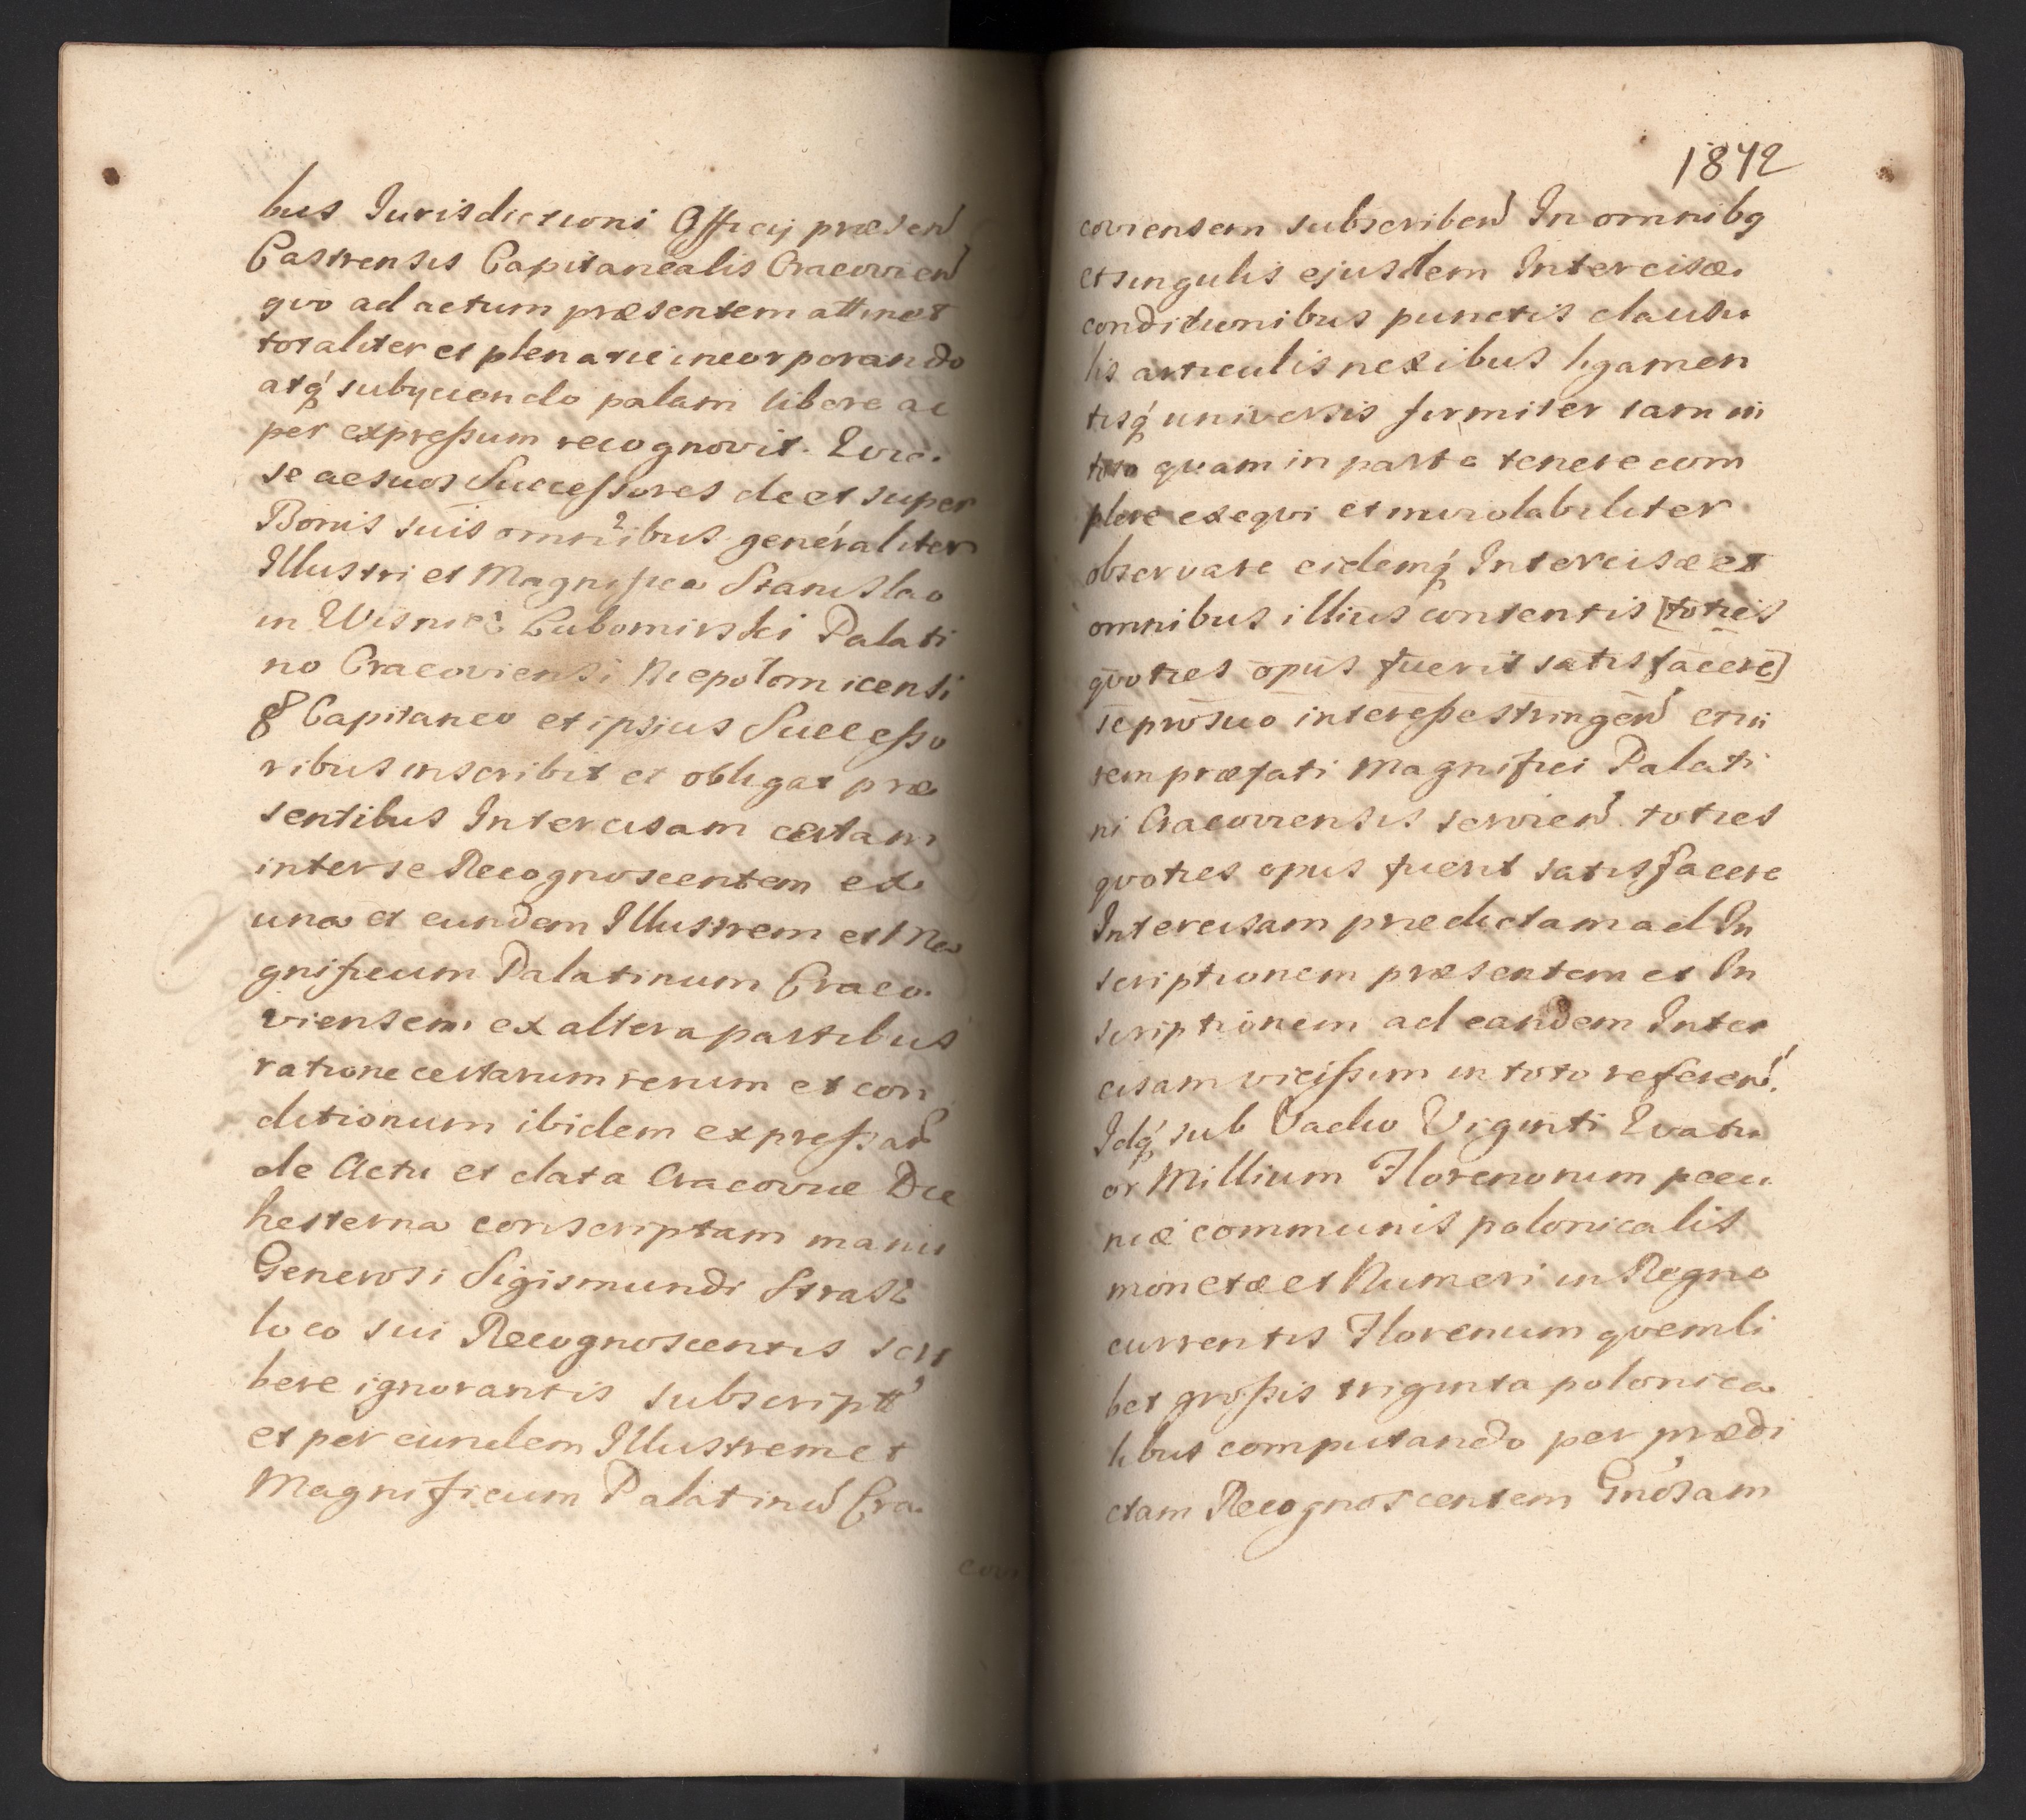 bus Jurisdictioni Officij præsen
Castrensis Capitanealis Cracovien
qvo ad actum præsentem attinet
totaliter et plenarie incorporando
atq subyciendo palam libere ac
per expreßum recognovit. Quia
se ac suos Succeßores de et super
Bonis suis omnibus generaliter
Illustri et Magnifico Stanislao
in Wisnicz Lubomirski Palati
no Cracoviensi Niepolomicensi
& Capitaneo et ipsius Succeßo
ribus inscribit et obligat præ
sentibus Intercisam certam
inter se Recognoscentem ex
una et eundem Illustrem et Ma
gnificum Palatinum Craco
viensem ex altera partibus
ratione certarum rerum et con
ditionum ibidem expreßar
de Actu et data Cracoviæ Die
hesterna conscriptam manu
Generosi Sigismundi Strasz
loco sui Recognoscentis scri
bere ignorantis subscriptt
et per eundem Illustrem et
Magnificum Palatinu Cra
covi
1842
coviensem subscriben In omnibq
et singulis ejusdem Intercisæ
conditionibus punctis clausu
lis articulis nexibus ligamen
tisq universis firmiter tam in
toto quam in parte tenere com
plere exeqvi et inviolabiliter
observare eidemq Intercisæ et
omnibus illius contentis [toties
qvoties opus fuerit satisfacere]
se pro suo intereße stringen et in
rem præfati Magnifici Palati
ni Cracoviensis servien toties
qvoties opus fuerit satisfacere
Intercisam prædictam ad In
scriptionem præsentem et In
scriptionem ad eandem Inter
cisam vicißim in toto referen.
Idq sub Vadio Viginti Qvatu
or Millium Florenorum pecu
niæ communis polonicalis
monetæ et Numeri in Regno
currentis Florenum qvemli
bet großis triginta polonica
libus computando per prædi
ctam Recognoscentem Gnosam